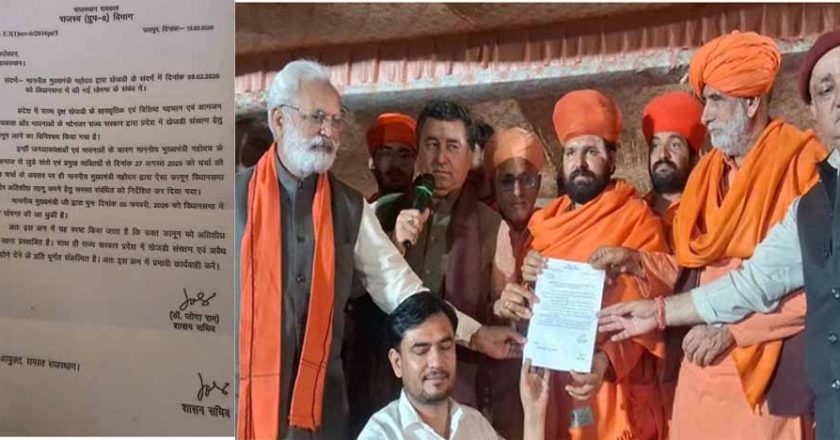 राजस्थान सरकार
राजस्व (ग्रुप-6) विभाग
जयपुर, दिनांक:- 12.02.2026
संदर्भ:- माननीय मुख्यमंत्री महोदय द्वारा खेजड़ी के संदर्भ में दिनांक 05.02.2026
को विधानसभा में की गई घोषणा के संबंध में।
प्रदेश में राज्य वृक्ष खेजड़ी के सांस्कृतिक एवं विशिष्ट पहचान एवं आमजन
और भावनाओं के मद्देनजर राज्य सरकार द्वारा प्रदेश में खेजड़ी संरक्षण हेतु
लाने का विनिश्चय किया गया है।
इन्हीं जनआकांक्षाओं एवं भावनाओं के कारण माननीय मुख्यमंत्री महोदय के
से जुड़े संतो एवं प्रमुख व्यक्तियों से दिनांक 27 अगस्त 2025 को चर्चा की
चर्चा के अवसर पर ही माननीय मुख्यमंत्री महोदय द्वारा ऐसा कानून विधानसभा
अतिशीघ्र लागू करने हेतु समस्त संबंधित को निर्देशित कर दिया गया।
माननीय मुख्यमंत्री जी द्वारा पुनः दिनांक 05 फरवरी, 2026 को विधानसभा में
घोषणा की जा चुकी है।
अतः इस क्रम में यह स्पष्ट किया जाता है कि उक्त कानून को अतिशीघ्र
लाना प्रस्तावित है। साथ ही राज्य सरकार प्रदेश में खेजड़ी संरक्षण एवं अवैध
होने देने के प्रति पूर्णतः संकल्पित है। अतः इस क्रम में प्रभावी कार्यवाही करें।
(डॉ. जोगा राम)
शासन सचिव
आयुक्त, समस्त राजस्थान।
शासन सचिव